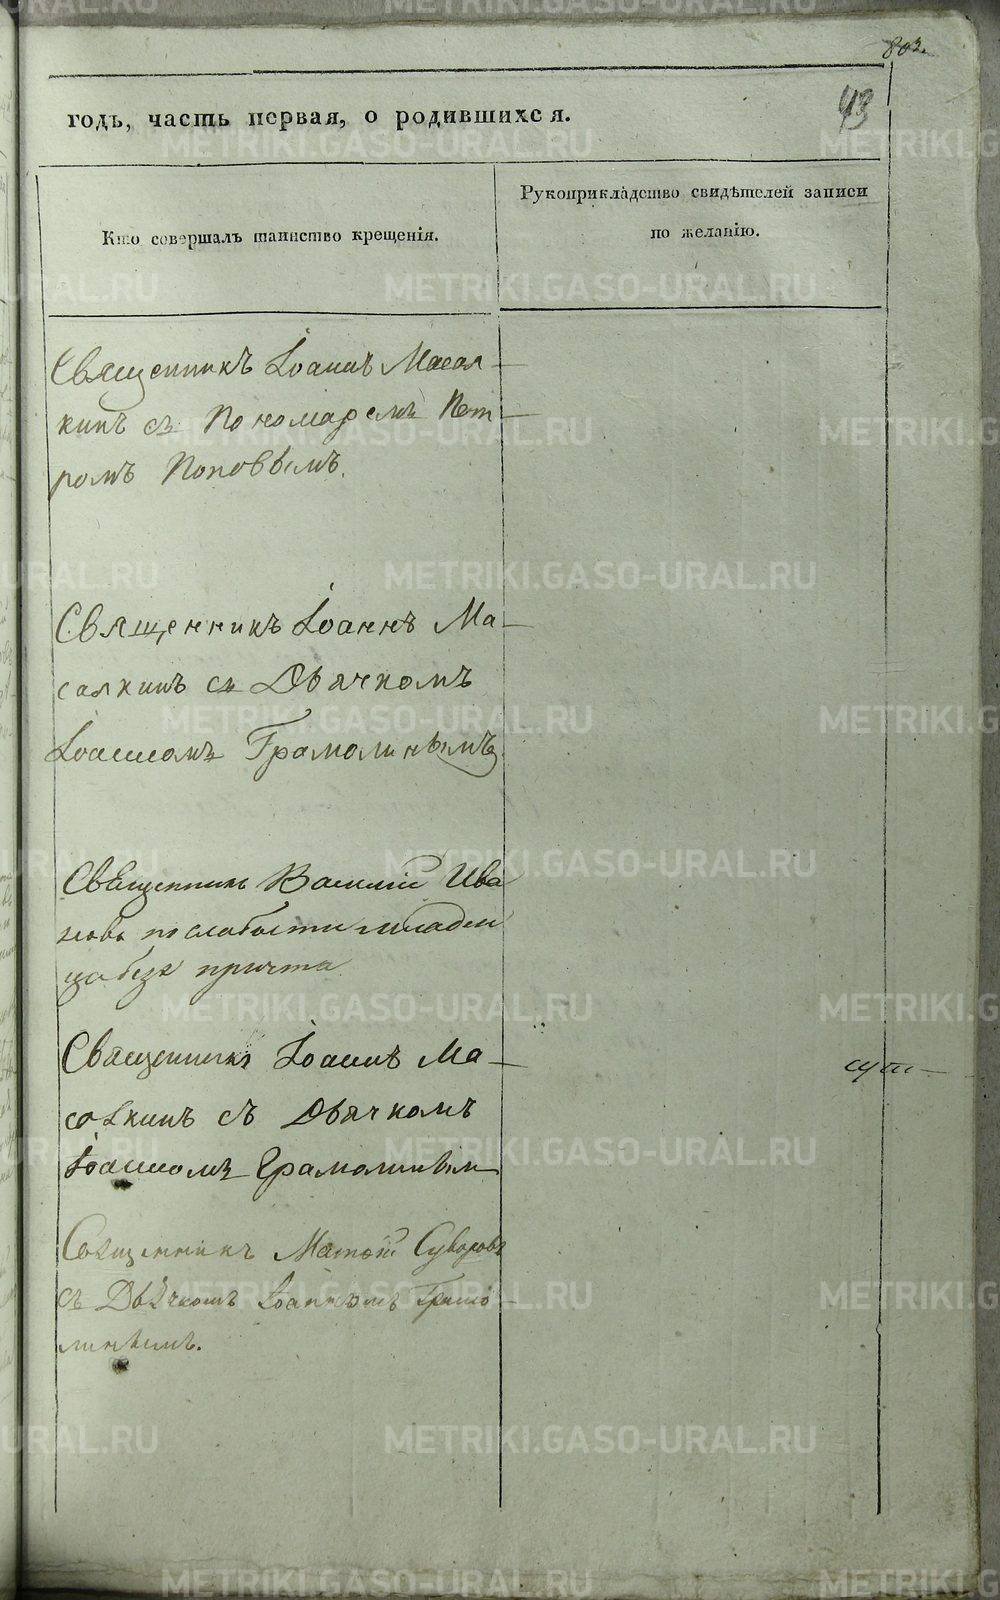 802.
43
годъ, часть первая, о родившихся.
Кто совершалъ таинство крещенія.
Рукоприкладство свидѣтелей записи
по желанію.
Священникъ Іоаннъ Масал-
кинъ съ Пономаремъ Пет-
ромъ Поповымъ.
Священникъ Іоаннъ Ма-
салкинъ съ Дьячкомъ
Іоанномъ Грамолинымъ
Священникъ Василій Ива
новъ по слабости младен
ца безъ причта
Священникъ Іоаннъ Ма-
салкинъ съ Дьячкомъ
Іоанномъ Грамолиным
Священникъ Матѳій Суворовъ
съ Дьячкомъ Іоанномъ Грамо-
линымъ.
METRIKI.GASO-URAL.RU